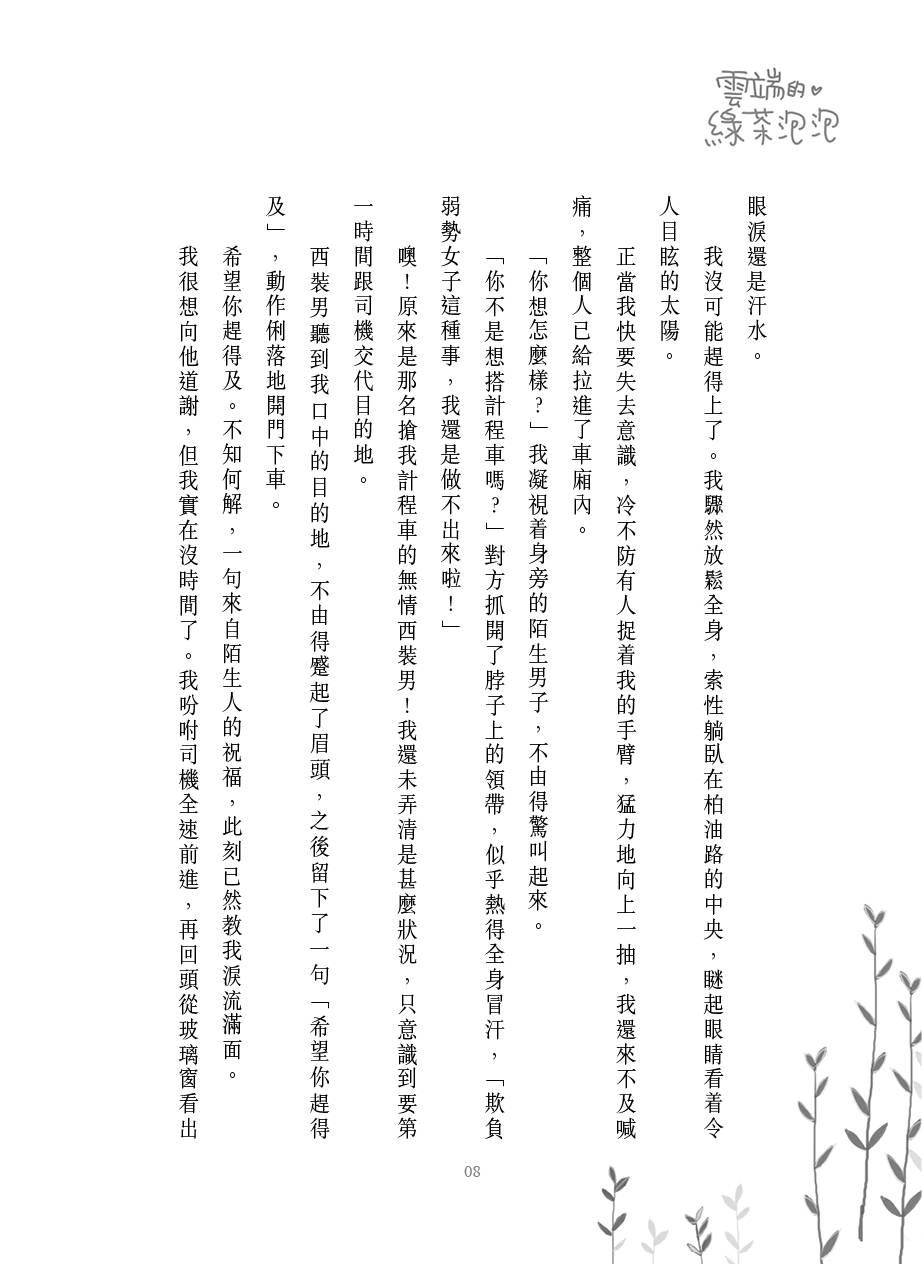 雲端的
綠茶泡泡
眼淚還是汗水。
我沒可能趕得上了。我驟然放鬆全身，索性躺臥在柏油路的中央，瞇起眼睛看着令
人目眩的太陽。
正當我快要失去意識，冷不防有人捉着我的手臂，猛力地向上一抽，我還來不及喊
痛，整個人已給拉進了車廂內。
「你想怎麼樣？」我凝視着身旁的陌生男子，不由得驚叫起來。
「你不是想搭計程車嗎？」對方抓開了脖子上的領帶，似乎熱得全身冒汗，「欺負
弱勢女子這種事，我還是做不出來啦！」
噢！原來是那名搶我計程車的無情西裝男！我還未弄清是甚麼狀況，只意識到要第
一時間跟司機交代目的地。
西裝男聽到我口中的目的地，不由得蹙起了眉頭，之後留下了一句「希望你趕得
及」，動作俐落地開門下車。
希望你趕得及。不知何解，一句來自陌生人的祝福，此刻已然教我淚流滿面。
我很想向他道謝，但我實在沒時間了。我吩咐司機全速前進，再回頭從玻璃窗看出
08